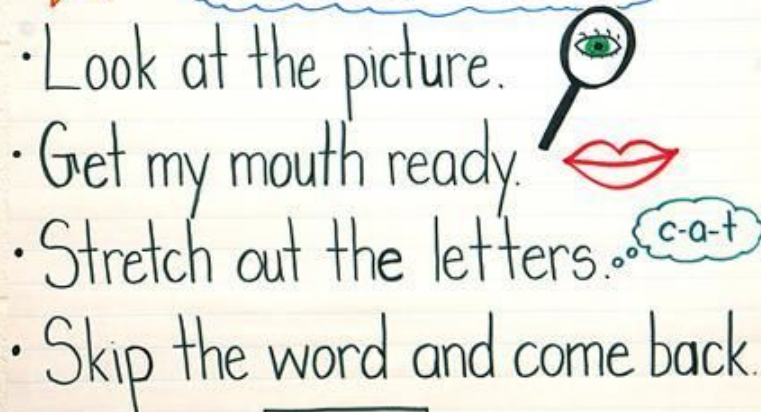 • Look at the picture.
• Get my mouth ready.
• Stretch out the letters.
c-a-t
• Skip the word and come back.